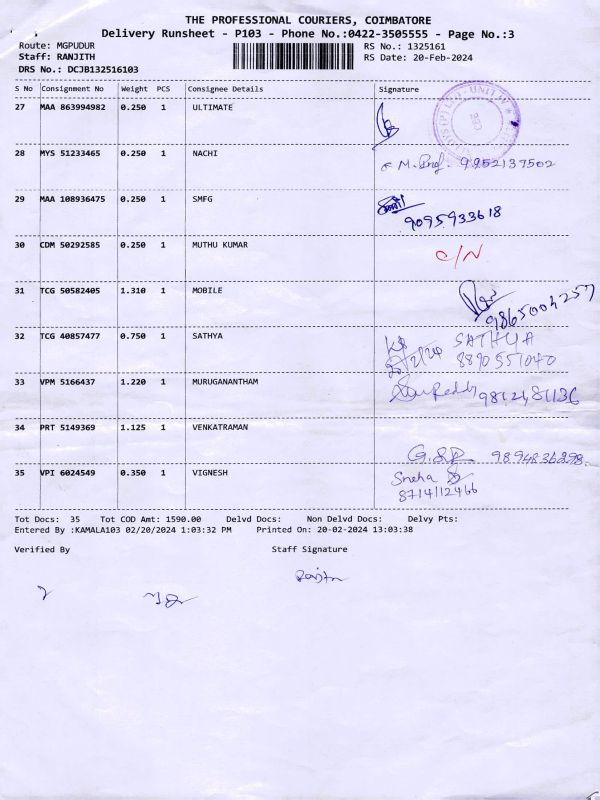 THE PROFESSIONAL COURIERS, COIMBATORE
Delivery Runsheet - P103 - Phone No.:0422-3505555 - Page No.:3
Route: MGPUDUR RS No.: 1325161
Staff: RANJITH RS Date: 20-Feb-2024
DRS No.: DCJB132516103
S No Consignment No Weight PCS Consignee Details Signature
27 MAA 863994982 0.250 1 ULTIMATE
28 MYS 51233465 0.250 1 NACHI
9952137502
29 MAA 108936475 0.250 1 SMFG
9095933618
30 CDM 50292585 0.250 1 MUTHU KUMAR
C/N
31 TCG 50582405 1.310 1 MOBILE
9865004257
32 TCG 40857477 0.750 1 SATHYA
SATHYA
8890551040
33 VPM 5166437 1.220 1 MURUGANANTHAM
34 PRT 5149369 1.125 1 VENKATRAman
9894836298.
35 VPI 6024549 0.350 1 VIGNESH
Sneha
8714112466
Tot Docs: 35 Tot COD Amt: 1590.00 Delvd Docs: Non Delvd Docs: Delvy Pts:
Entered By :KAMALA103 02/20/2024 1:03:32 PM Printed On: 20-02-2024 13:03:38
Verified By Staff Signature
Ranjith